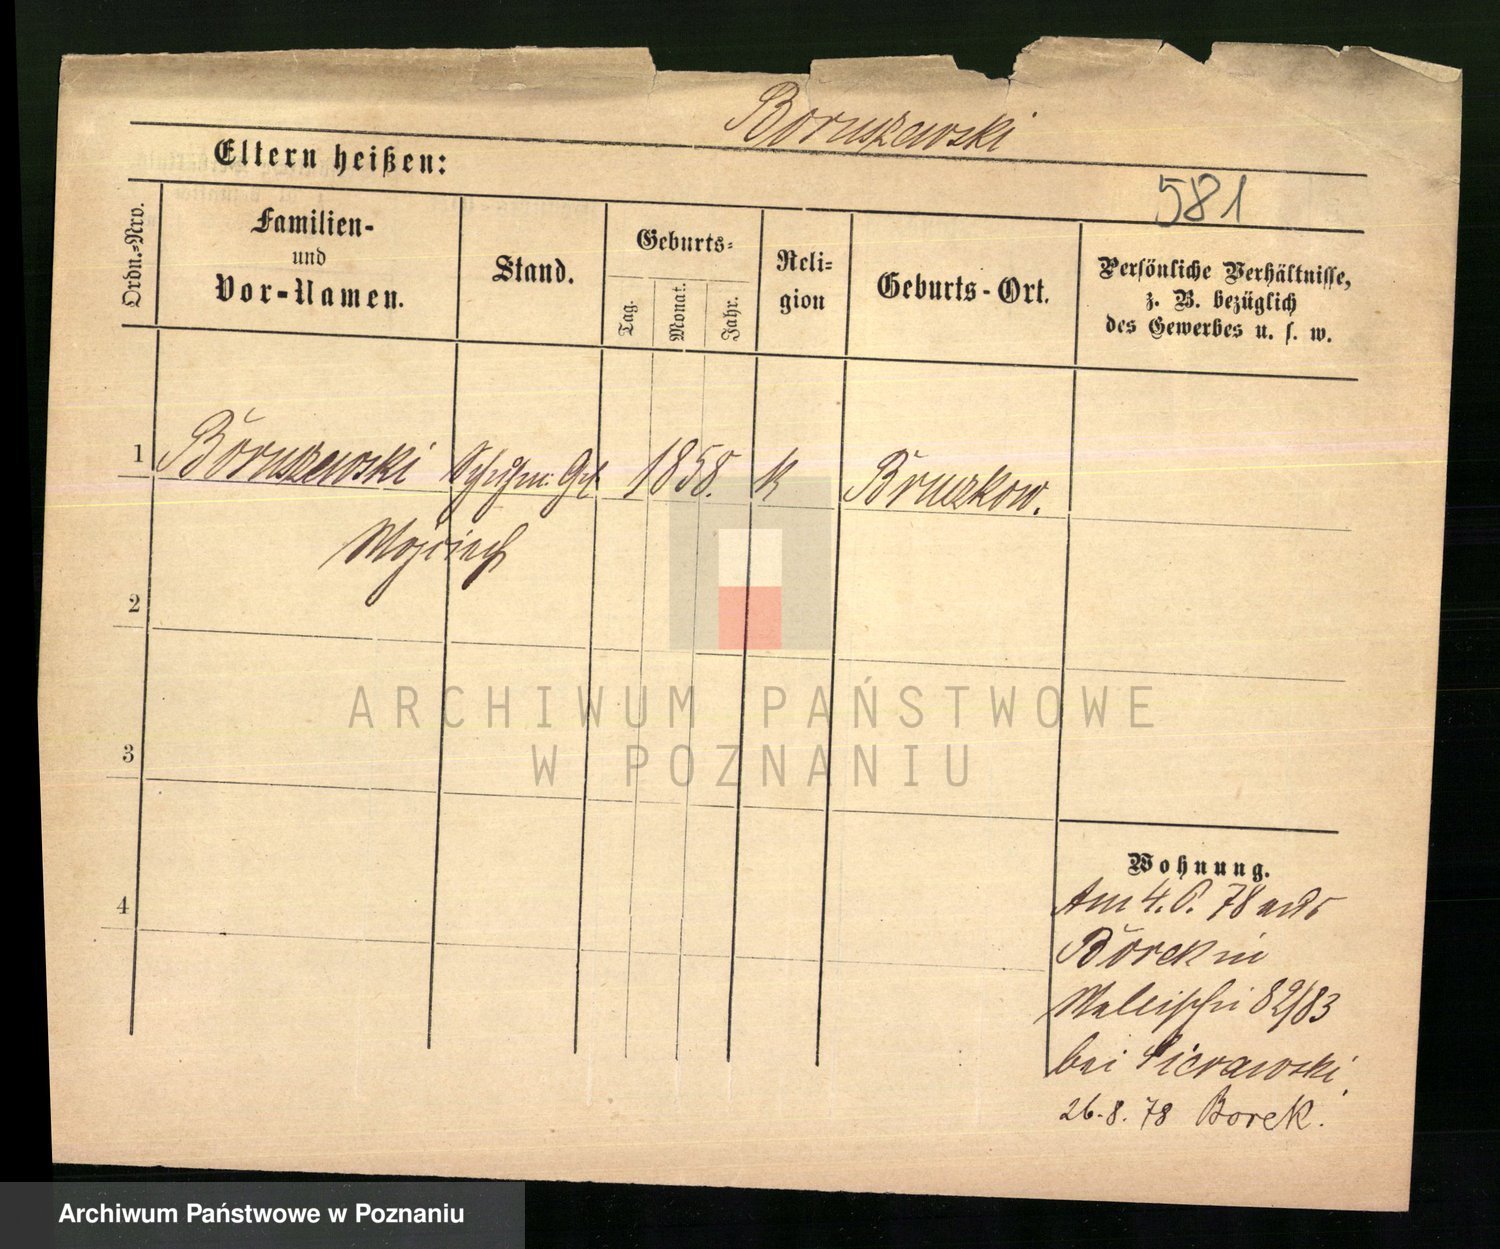 Boruszewski
Eltern heißen:
581
Ordn.-Nro.
Familien-
und
Vor-Namen.
Stand.
Geburts-
Tag.
Monat.
Jahr.
Reli-
gion
Geburts-Ort.
Persönliche Verhältnisse,
z. B. bezüglich
des Gewerbes u. s. w.
1 Boruszewski 1858. K Bruczkow.
Wojciech
2
3
4
ARCHIWUM PAŃSTWOWE
W POZNANIU
Wohnung.
Am 4. 78 aus
Borek in
Wallischei 82/83
bei Sierawski.
26.8.78 Borek.
Archiwum Państwowe w Poznaniu